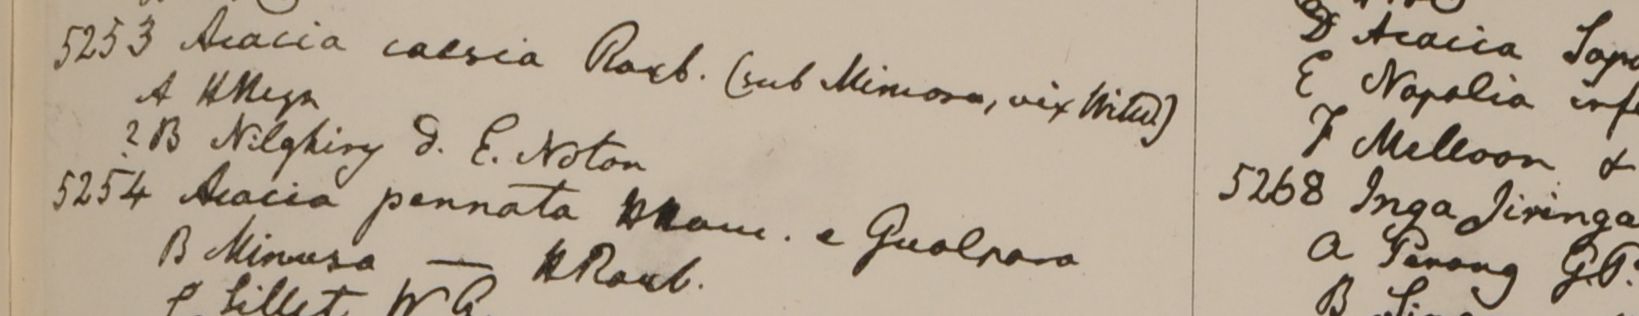 5253 Acacia caesia Roxb. (sub Mimosa, vix Willd.)
A HHeyn
? B Nilghiry D. E. Noton
5254 Acacia pennata HHam. e Gualpara
B Mimosa — HRoxb.
C Sillet W G
D Acacia
E Napalia
F Melloon &
5268 Inga Jiringa
a Penang G.P.
B